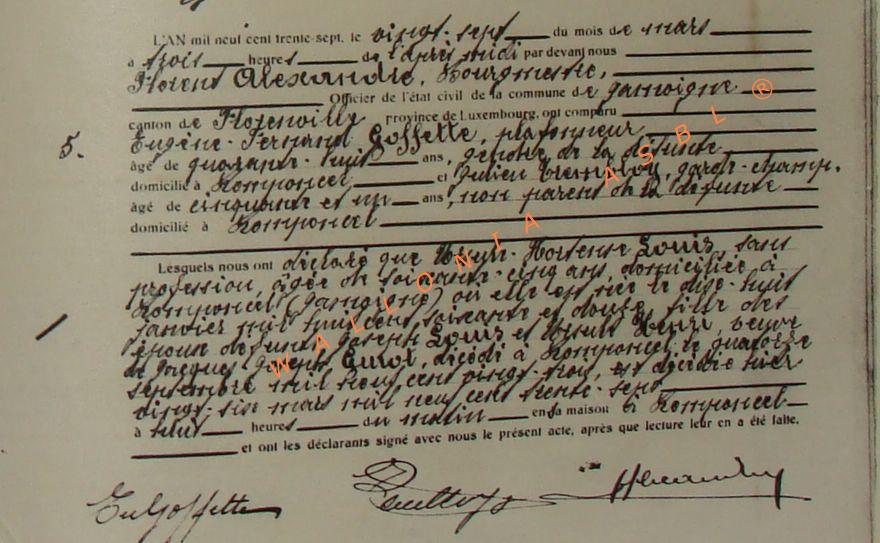 L'AN mil neuf cent trente-sept, le vingt-sept du mois de mars
à trois heures de l'après midi par devant nous
Florent Alexandre, Bourgmestre,
Officier de l'état civil de la commune de Jamoigne
canton de Florenville province de Luxembourg, ont comparu
Eugène-Fernand Goffette, plafonneur
5.
âgé de quarante-huit ans, gendre de la défunte
domicilié à Romponcel et Julien garde-champ.
âgé de cinquante et un ans, non parent de la défunte
domicilié à Romponcel
Lesquels nous ont déclaré que Hortense Louis, sans
profession, âgée de soixante-cinq ans, domiciliée à
Romponcel (Jamoigne) où elle est née le dix-huit
janvier mil huit cent soixante et douze, fille des
époux défunts Joseph Louis et Henri, veuve
de Jacques Joseph décédé à Romponcel le quatorze
septembre mil neuf cent vingt-trois, est décédée hier
vingt-six mars mil neuf cent trente-sept
à heures du matin en sa maison à Romponcel
et ont les déclarants signé avec nous le présent acte, après que lecture leur en a été faite.
Goffette
WALLONIA ASBL ®